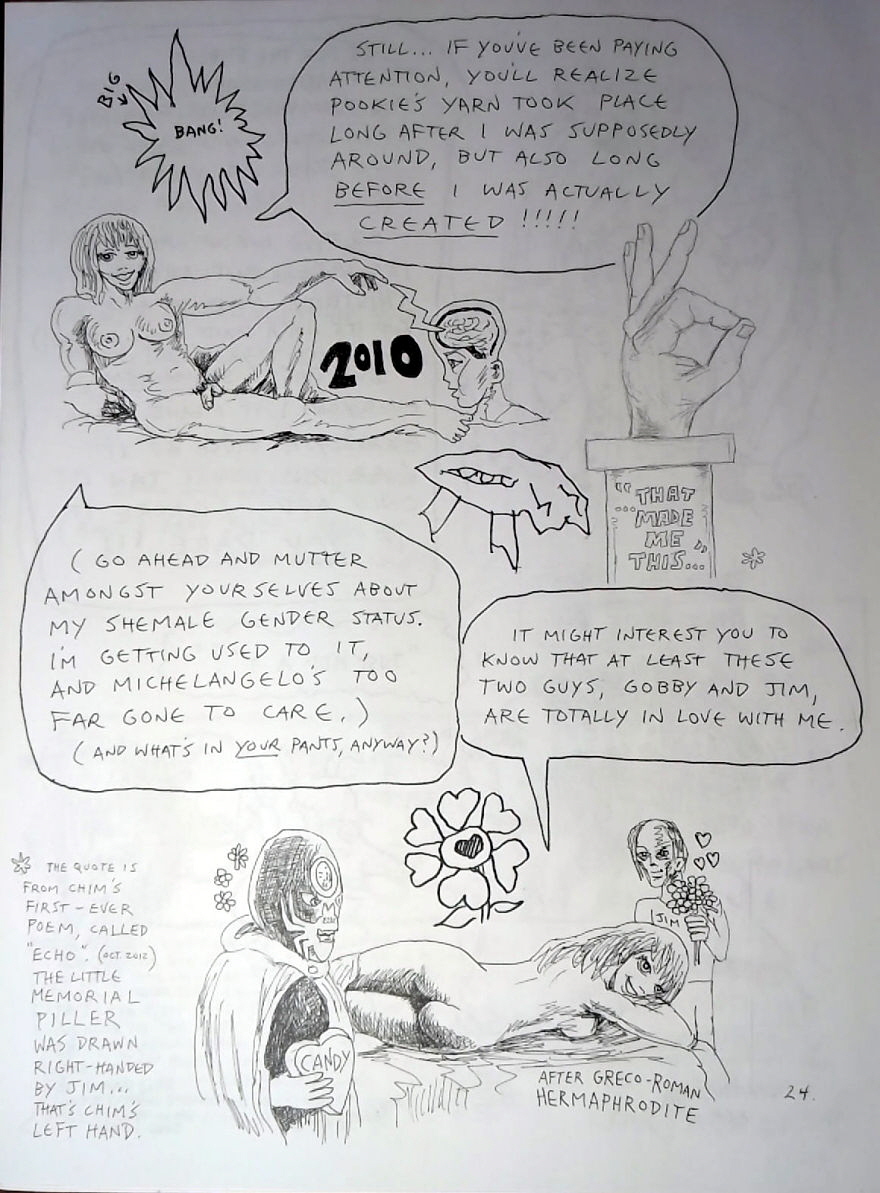 BIG
BANG!
STILL... IF YOU'VE BEEN PAYING
ATTENTION, YOU'LL REALIZE
POOKIE'S YARN TOOK PLACE
LONG AFTER I WAS SUPPOSEDLY
AROUND, BUT ALSO LONG
BEFORE I WAS ACTUALLY
CREATED !!!!!
2010
"THAT
...MADE
ME
THIS..." *
( GO AHEAD AND MUTTER
AMONGST YOURSELVES ABOUT
MY SHEMALE GENDER STATUS.
I'M GETTING USED TO IT,
AND MICHELANGELO'S TOO
FAR GONE TO CARE. )
( AND WHAT'S IN YOUR PANTS, ANYWAY? )
IT MIGHT INTEREST YOU TO
KNOW THAT AT LEAST THESE
TWO GUYS, GOBBY AND JIM,
ARE TOTALLY IN LOVE WITH ME.
* THE QUOTE IS
FROM CHIM'S
FIRST-EVER
POEM, CALLED
"ECHO". (OCT. 2012)
THE LITTLE
MEMORIAL
PILLER
WAS DRAWN
RIGHT-HANDED
BY JIM...
THAT'S CHIM'S
LEFT HAND.
JIM
CANDY
AFTER GRECO-ROMAN
HERMAPHRODITE
24.